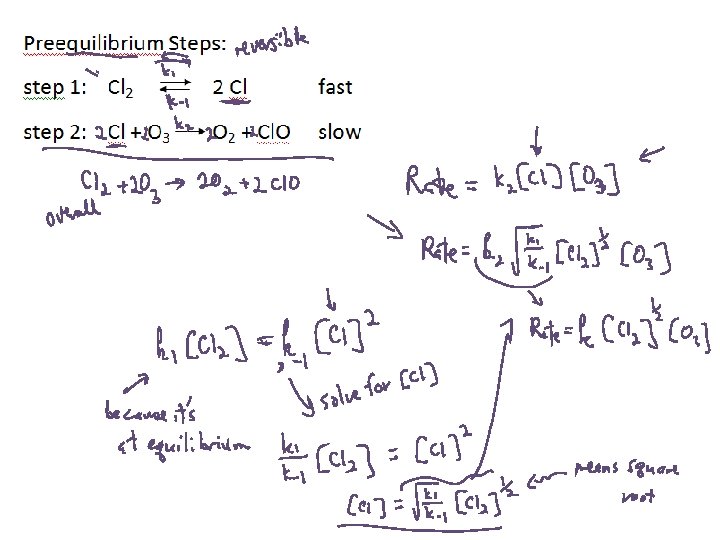 Preequilibrium Steps: reversible
step 1: Cl₂ k₁ ⇌ k₋₁ 2 Cl fast
step 2: 2Cl + 2O₃ k₂ → 2O₂ + 2ClO slow
Cl₂ + 2O₃ → 2O₂ + 2ClO
overall
Rate = k₂[Cl][O₃]
Rate = k₂ √(k₁/k₋₁) [Cl₂]^½ [O₃]
Rate = k [Cl₂]^½ [O₃]
k₁[Cl₂] = k₋₁[Cl]²
solve for [Cl]
because it's
at equilibrium
k₁/k₋₁ [Cl₂] = [Cl]²
[Cl] = √(k₁/k₋₁) [Cl₂]^½ ← means square
root